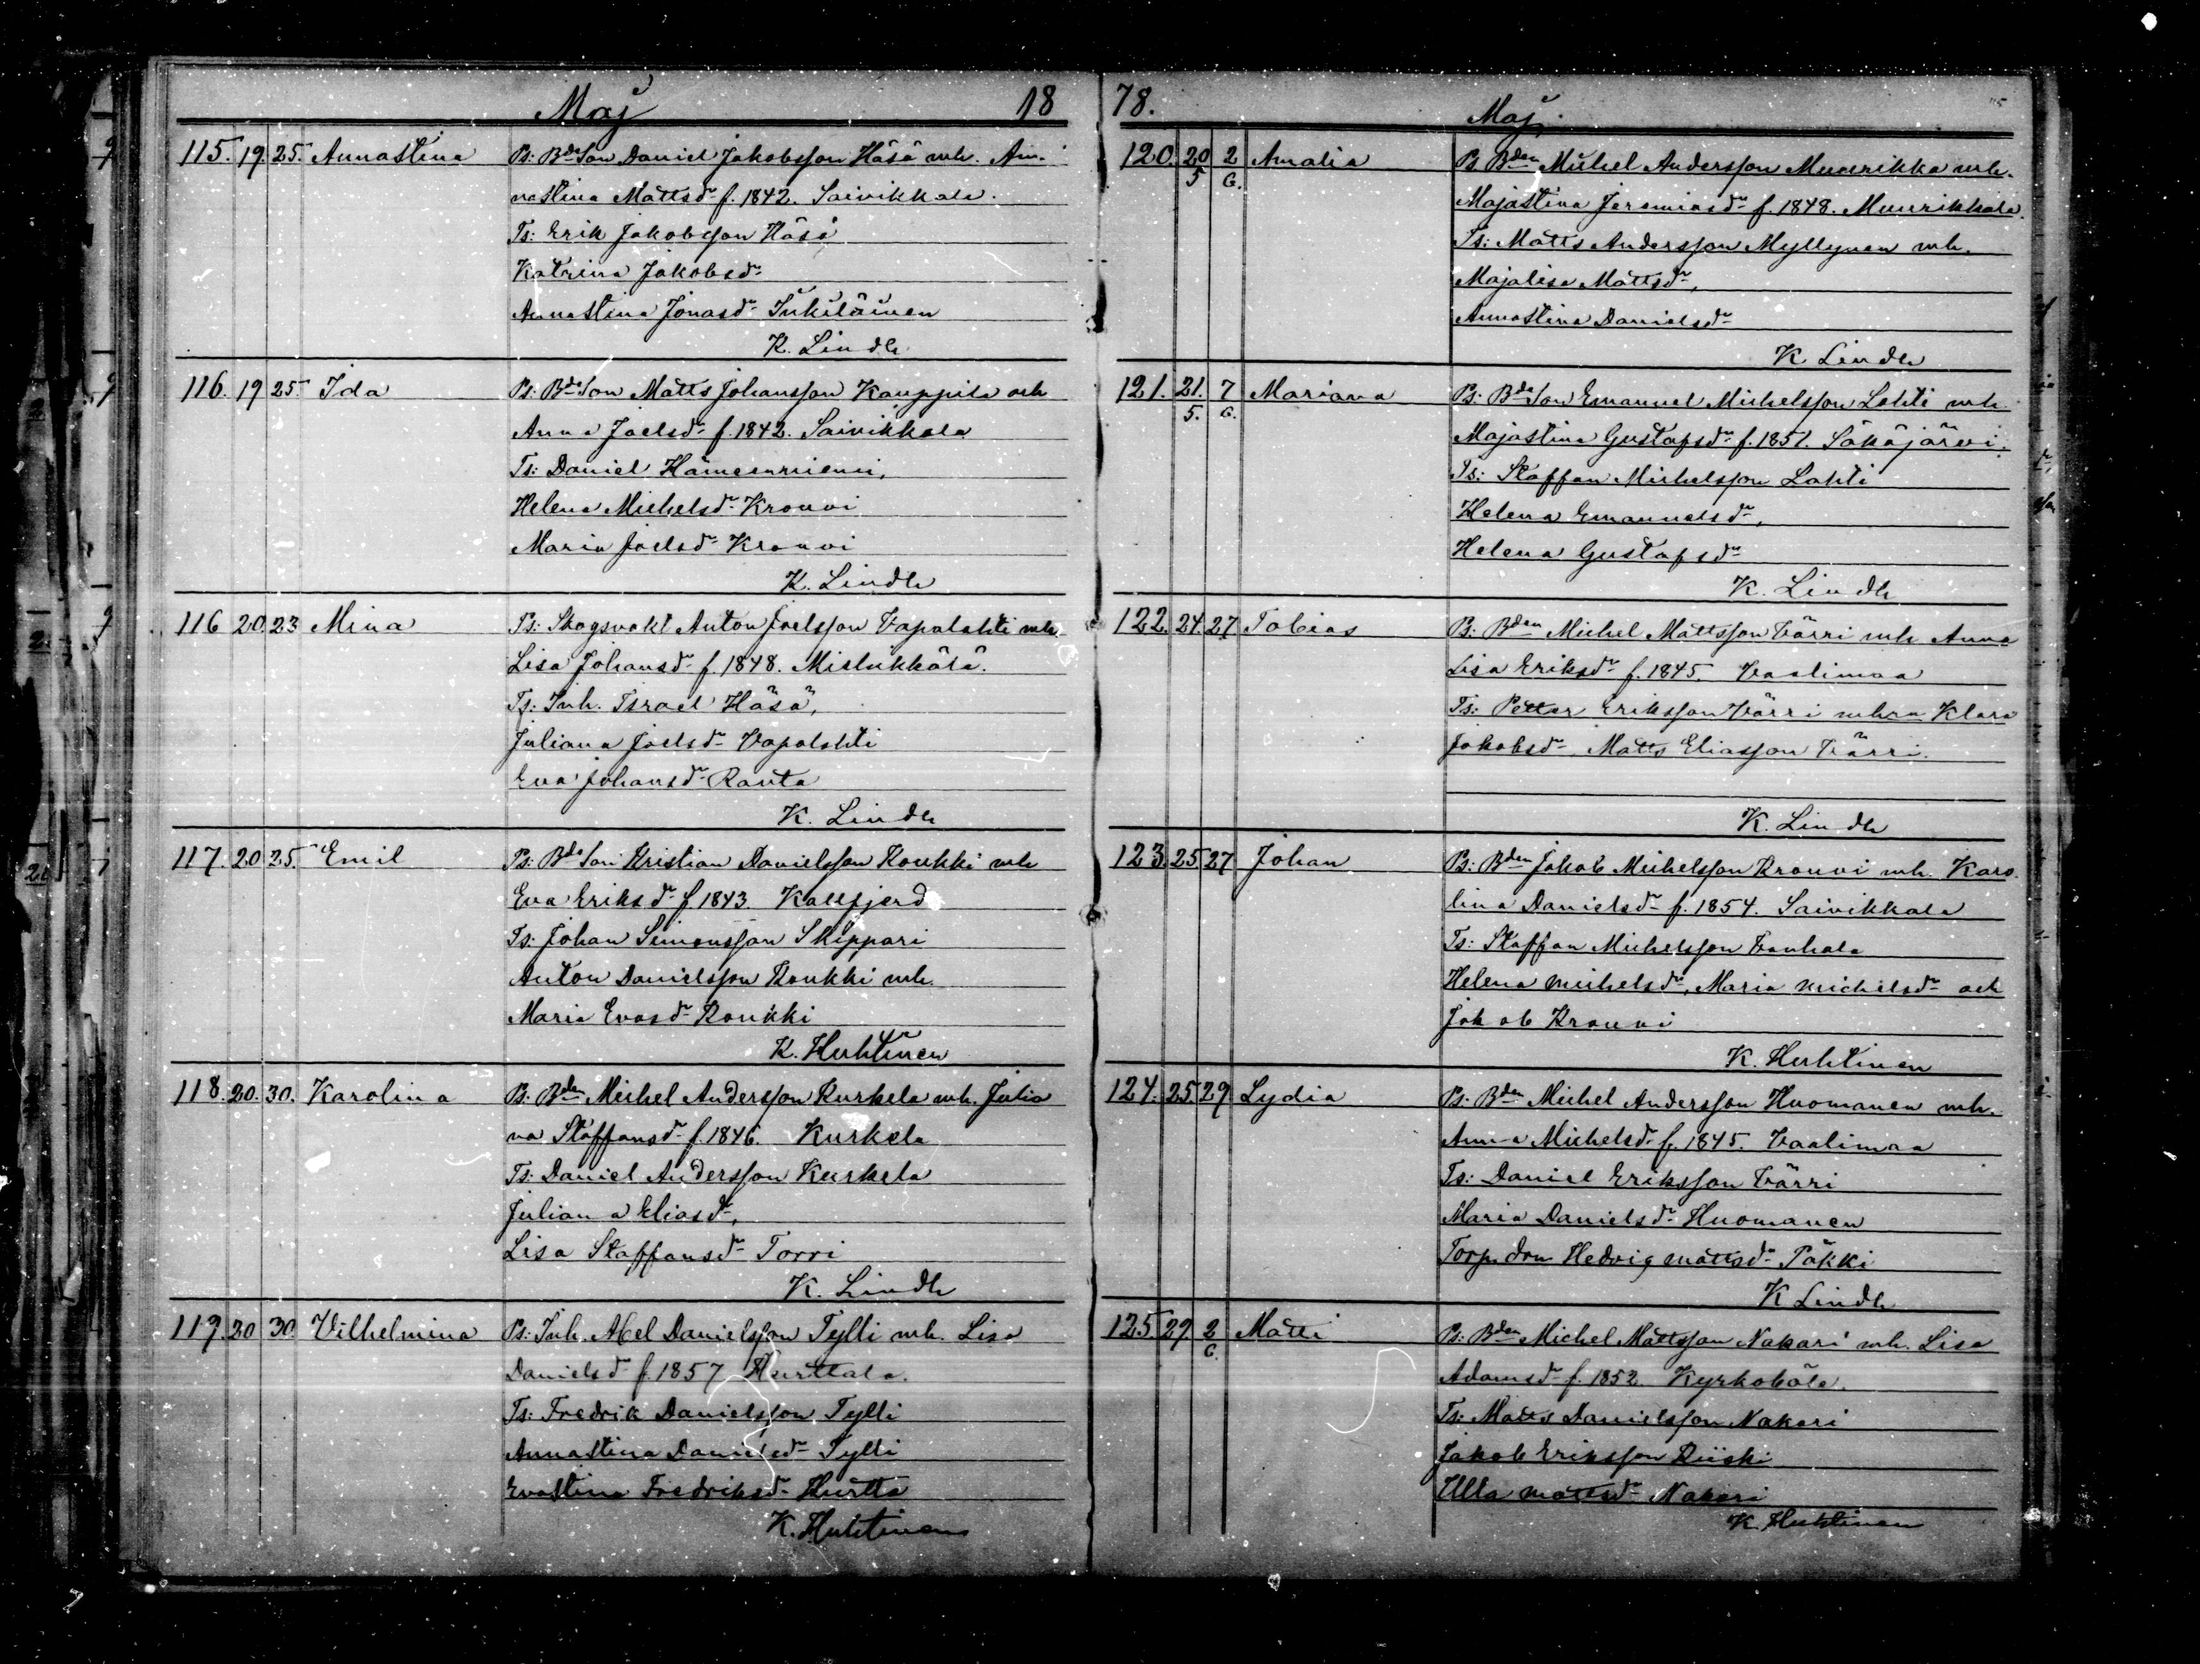 Maj 18
115. 19. 25. Annastina Ps: Bde Son Daniel Jakobsson Häsä mh. An-
nastina Mattsdr f. 1842. Saivikkala.
Ts: Erik Jakobsson Häsä
Katrina Jakobsdr
Annastina Jonasdr Inkiläinen
K. Lindh
116. 19 25. Ida Ps: Bde Son Matts Johansson Kauppila och
Anna Joelsdr f. 1842. Saivikkala
Ts: Daniel Hämeenniemi,
Helena Michelsdr Krouvi
Maria Joelsdr Krouvi
K. Lindh
116 20. 23 Mina Ps: Skogsvakt Anton Joelsson Vapalahti mh.
Lisa Johansdr f. 1848. Mislukkälä.
Ts: Inh. Israel Häsä,
Juliana Joelsdr Vapalahti
Eva Johansdr Ranta
K. Lindh
117. 20 25. Emil Ps: Bde Son Kristian Danielsson Koukki mh
Eva Eriksdr f. 1843. Kallfjerd
Ts: Johan Simonsson Skippari
Anton Danielsson Koukki mh.
Maria Evasdr Koukki
K. Huhtinen
118. 20. 30. Karolina Ps. Bden Michel Andersson Kurkela mh. Julia
na Staffansdr f. 1846. Kurkela
Ts: Daniel Andersson Kurkela
Juliana Eliasdr,
Lisa Staffansdr Torri
K. Lindh
119. 20 30. Vilhelmina Ps: Inh. Abel Danielsson Tylli mh. Lisa
Danielsdr f. 1857 Hurttala.
Ts: Fredrik Danielsson Tylli
Annastina Danielsdr Tylli
Evastina Fredriksdr Hurtta
K. Huhtinen
78. Maj.
120. 20/5 2/6. Amalia Ps. Bden Michel Andersson Muurikka mh.
Majastina Jeremiasdr f. 1848. Muurikkala.
Ts: Matts Andersson Myllynen mh.
Majalisa Mattsdr,
Annastina Danielsdr
K. Lindh
121. 21./5. 7/6. Mariana Ps: Bde Son Emanuel Michelsson Lahti mh.
Majastina Gustafsdr f. 1851. Säkäjärvi.
Ts: Staffan Michelsson Lahti
Helena Emanuelsdr,
Helena Gustafsdr
K. Lindh
122. 24. 27 Tobias Ps: Bden Michel Mattsson Värri mh Anna
Lisa Eriksdr f. 1845. Vaalimaa
Ts: Petter Eriksson Värri mhru Klara
Jakobsdr Matts Eliasson Värri.
K. Lindh
123. 25. 27 Johan Ps: Bden Jakob Michelsson Krouvi mh. Karo
lina Danielsdr f. 1854. Saivikkala
Ts: Staffan Michelsson Vanhala
Helena Michelsdr, Maria Michelsdr och
Jakob Krouvi
K. Huhtinen
124. 25 29 Lydia Ps. Bden Michel Andersson Huomanen mh.
Anna Michelsdr f. 1845. Vaalimaa
Ts: Daniel Eriksson Värri
Maria Danielsdr Huomanen
Torp. drn Hedvig Mattsdr Pökki
K Lindh
125 29 2/6. Matti Ps: Bden Michel Mattsson Nakari mh. Lisa
Adamsdr f. 1852. Kyrkoböle.
Ts: Matts Danielsson Nakari
Jakob Eriksson Kiiski
Ulla Mattsdr Nakari
K. Huhtinen